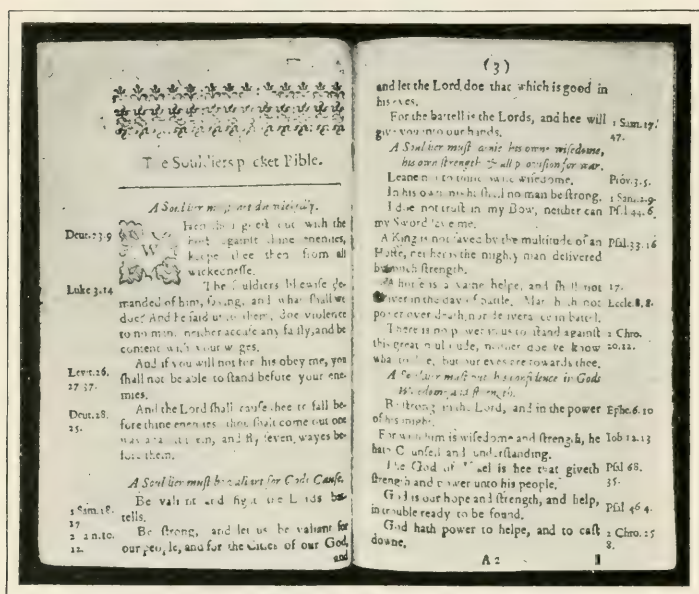 The Souldiers pcket Bible.
A Souldier must not doe wickedly.
Deut. 23.9
When thou goest out with the
host against thine enemies,
keepe thee then from all
wickednesse.
Luke 3.14
The souldiers likewise de-
manded of him, saying, and what shall we
doe? And he said unto them, doe violence
to no man, neither accuse any falsly, and be
content with your wages.
Levit. 26.
27 37.
And if you will not for this obey me, you
shall not be able to stand before your ene-
mies.
Deut. 28.
25.
And the Lord shall cause thee to fall be-
fore thine enemies, thou shalt come out one
way against them, and fly seven wayes be-
fore them.
A Souldier must be valiant for Gods Cause.
1 Sam. 18.
17
Be valiant and fight the Lords bat-
tells.
2 Sam. 10.
12.
Be strong, and let us be valiant for
our people, and for the Cities of our God,
and
(3)
and let the Lord doe that which is good in
his eyes.
For the battell is the Lords, and hee will
give you into our hands.
1 Sam. 17.
47.
A Souldier must denie his owne wisedome,
his own strength & all provision for war.
Leane not to thine owne wisedome.
Prov. 3.5.
In his own might shall no man be strong.
1 Sam. 2.9.
I doe not trust in my Bow, neither can
my Sword save me.
Psal 44.6.
A King is not saved by the multitude of an
Hoste, neither is the mighty man delivered
by much strength.
Psal. 33. 16
A horse is a vaine helpe, and shall not
17.
deliver in the day of battle. Man hath not
power over death, nor deliverance in batel.
Eccle. 8, 8.
There is no power in us to stand against
this great multitude, neither doe we know
what to doe, but our eyes are towards thee.
1 Chro.
20.12.
A Souldier must put his confidence in Gods
Wisdome and strength.
Be strong in the Lord, and in the power
of his might.
Ephe. 6. 10
For with him is wisedome and strength, he
hath Counsell and understanding.
Iob 12.13
The God of Israel is hee that giveth
strength and power unto his people.
Psal 68.
35.
God is our hope and strength, and help,
in trouble ready to be found.
Psal 46 4.
God hath power to helpe, and to cast
downe.
2 Chro. 25
8.
A 2